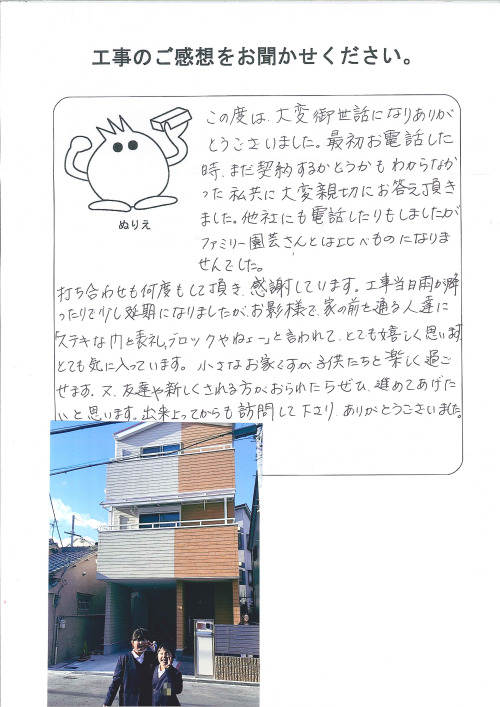 工事のご感想をお聞かせください。
この度は、大変御世話になりありが
とうございました。最初お電話した
時、まだ契約するかどうかもわからなか
った私共に大変親切にお答え頂き
ました。他社にも電話したりもしましたが
ファミリー園芸さんとは比べものになりま
せんでした。
ぬりえ
打ち合わせも何度もして頂き、感謝しています。工事当日雨が降
ったりで少し延期になりましたが、お影様で、家の前を通る人達に
「ステキな門と表札、ブロックやねェー」と言われて、とても嬉しく思います
とても気に入っています。小さなお家ですが子供たちと楽しく過ご
せます。又、友達や新しくされる方がおられたらぜひ、進めてあげた
いと思います。出来上ってからも訪問して下さり、ありがとうございました。